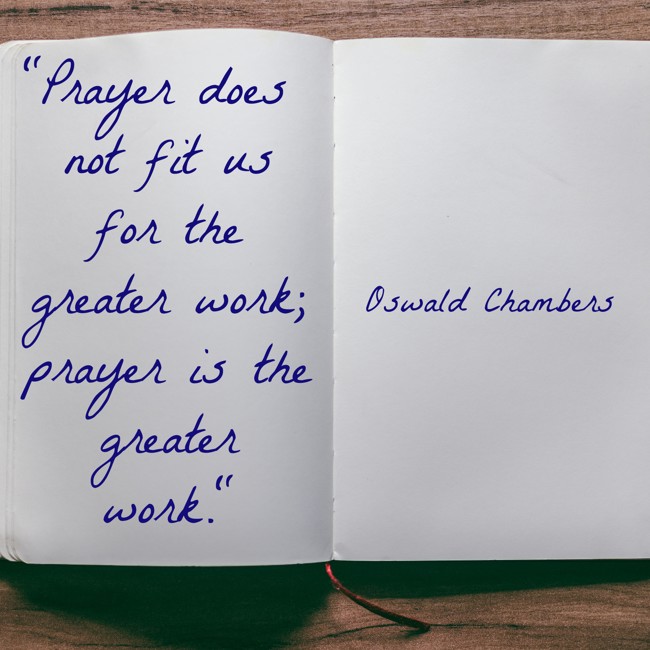 “Prayer does
not fit us
for the
greater work;
prayer is the
greater
work.“
Oswald Chambers